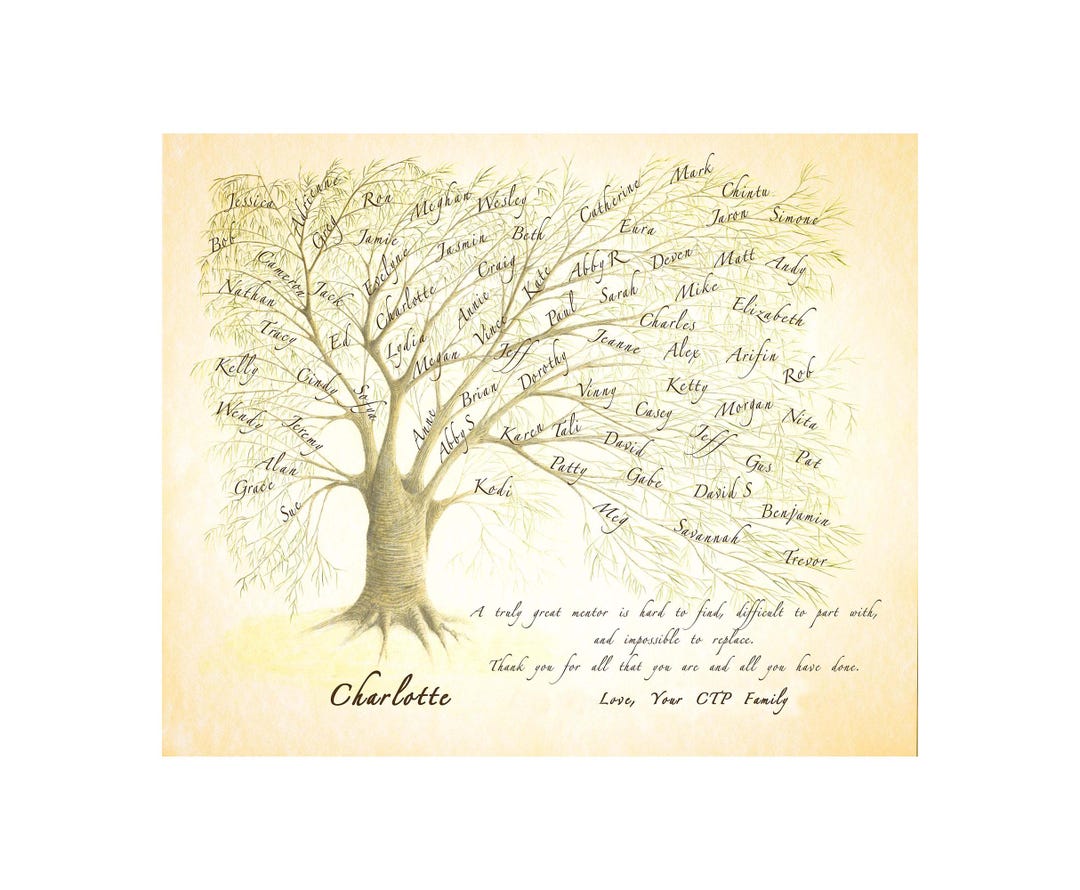 Mark
Adrienne
Chintu
Jessica
Ron
Meghan
Wesley
Catherine
Jaron
Simone
Greg
Eura
Bob
Jamie
Jasmin
Beth
Evelyne
Craig
Abby R
Deven
Matt
Andy
Cameron
Kate
Nathan
Jack
Charlotte
Annie
Sarah
Mike
Paul
Elizabeth
Tracy
Ed
Vince
Charles
Lydia
Jeff
Jeanne
Alex
Arifin
Megan
Dorothy
Kelly
Cindy
Rob
Sofya
Brian
Vinny
Ketty
Casey
Morgan
Wendy
Anne
Nita
Jeremy
Abby S
Karen
Tali
David
Jeff
Alan
Patty
Gus
Pat
Grace
Kodi
Gabe
David S
Sue
Meg
Benjamin
Savannah
Trevor
A truly great mentor is hard to find, difficult to part with,
and impossible to replace.
Thank you for all that you are and all you have done.
Charlotte
Love, Your CTP Family